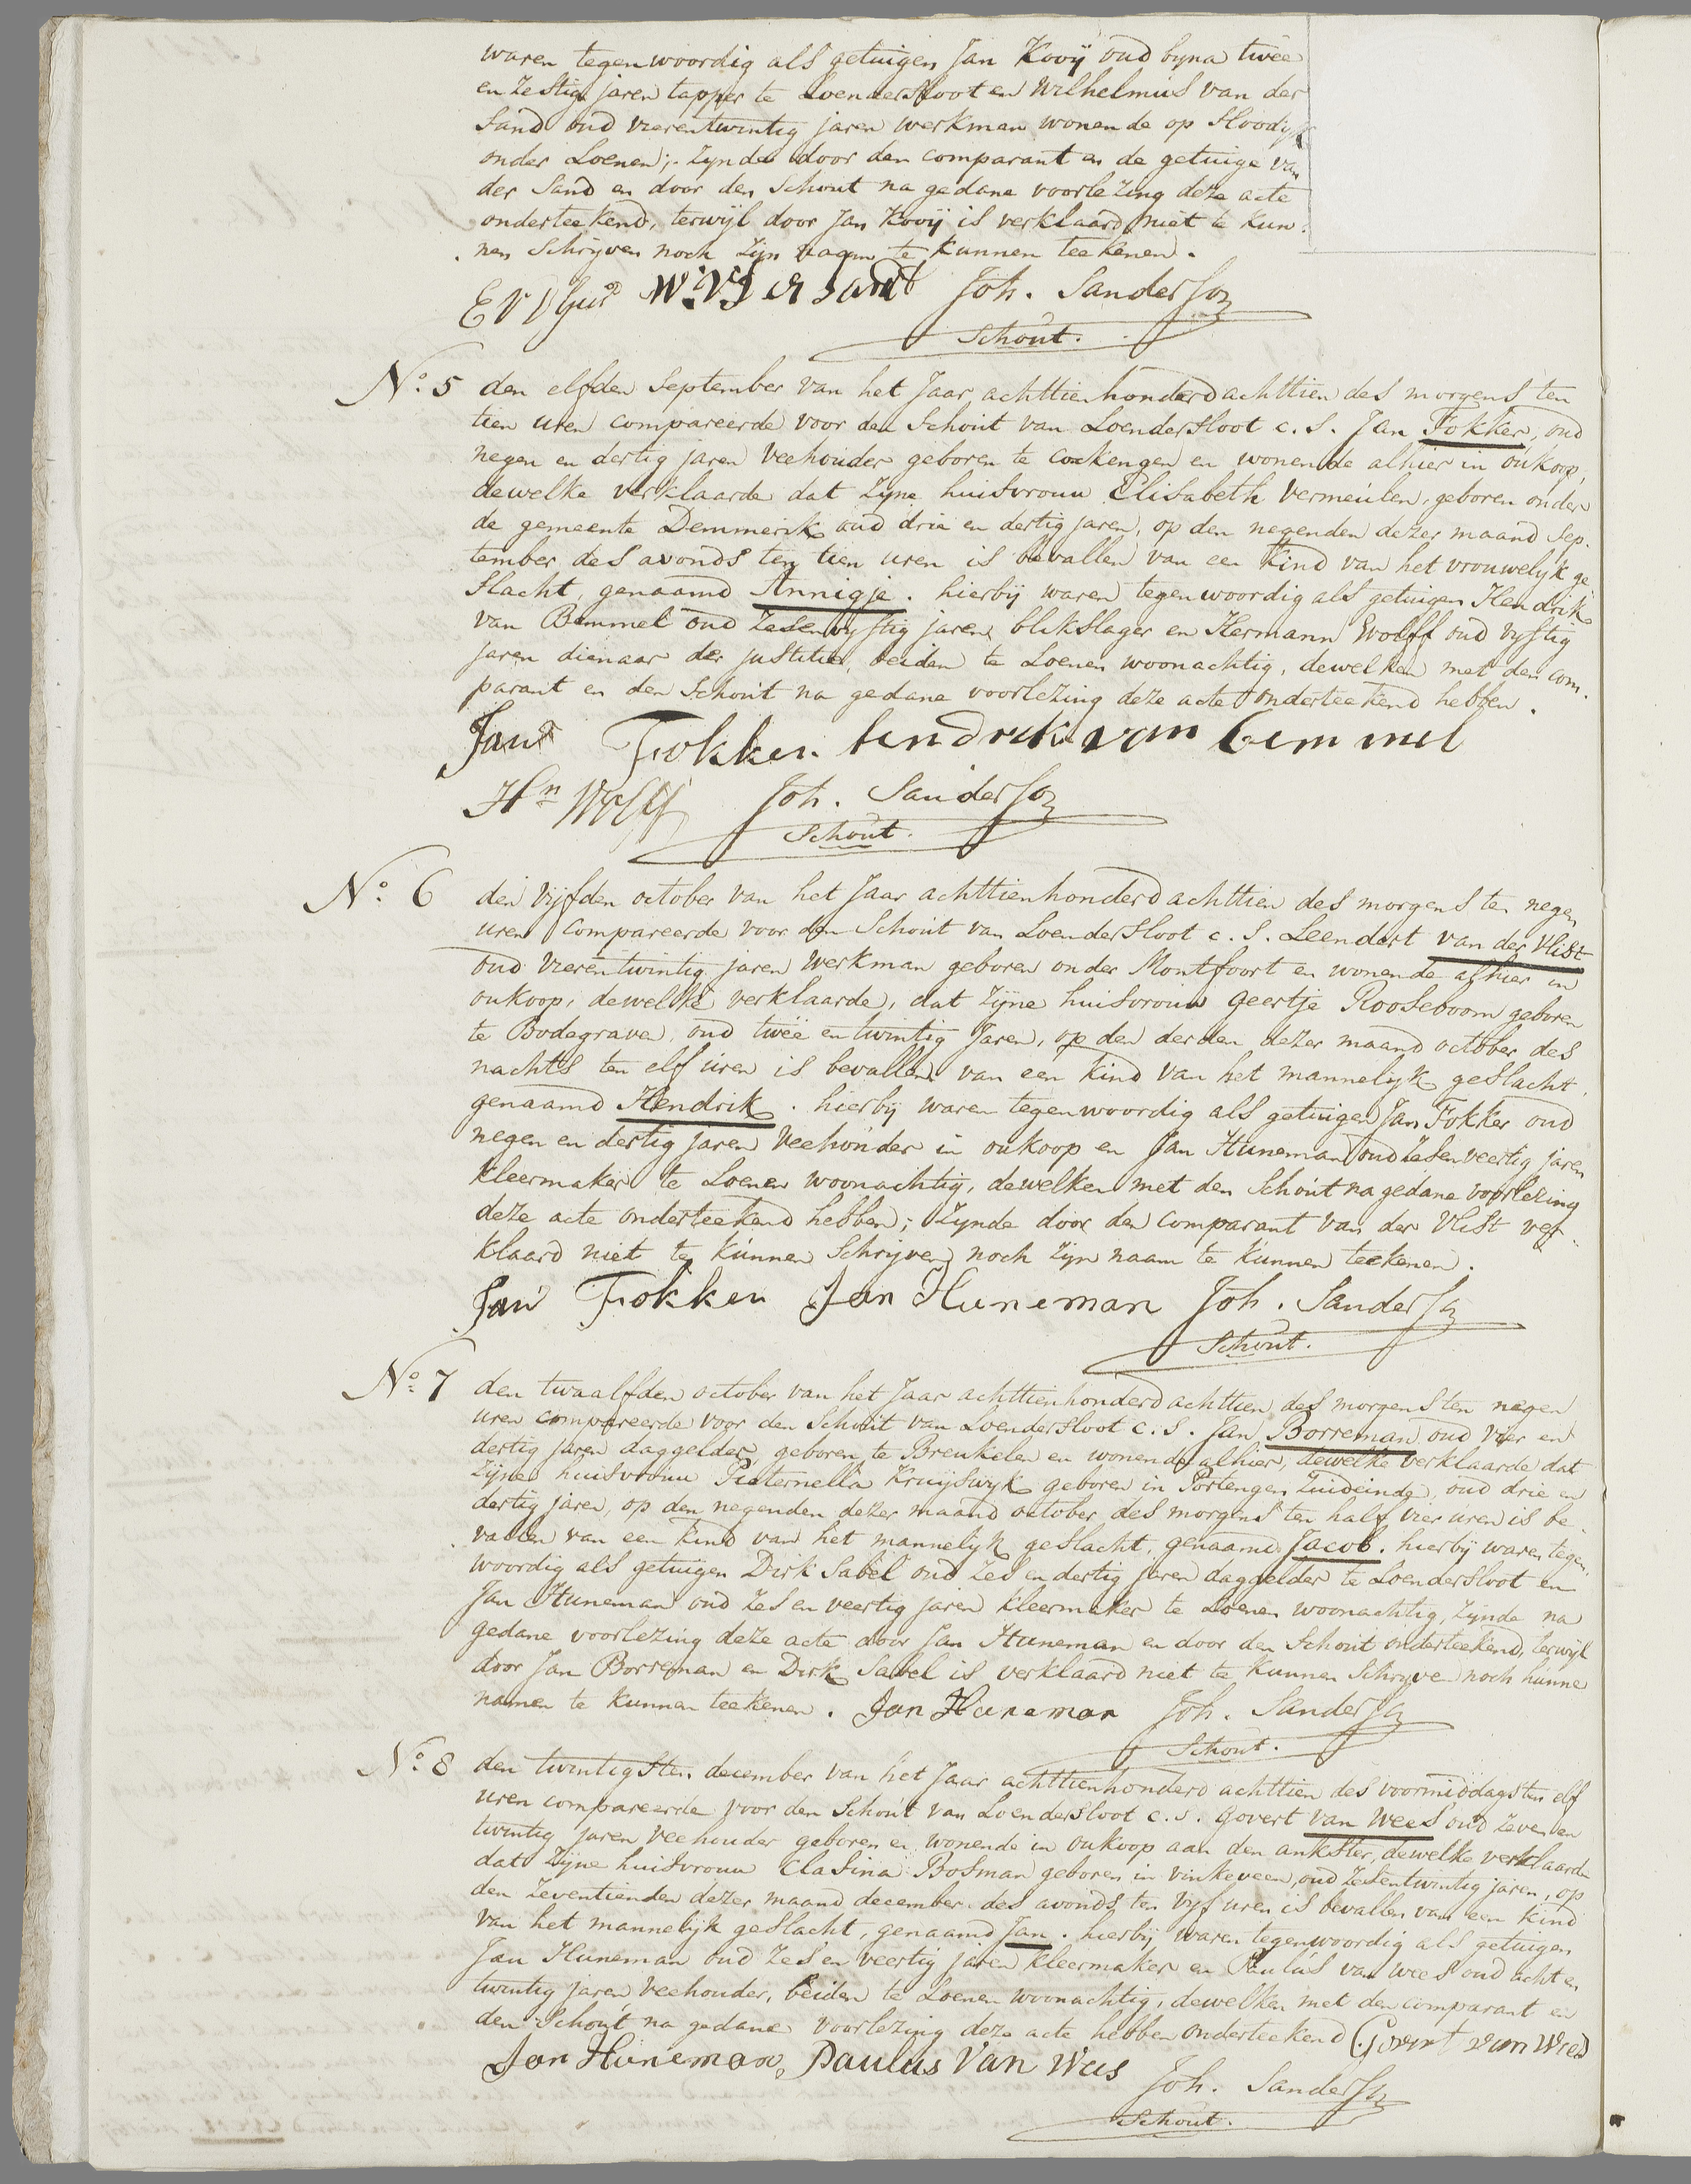 waren tegenwoordig als getuigen Jan Kooij oud byna twee
en zestig jaren tapper te Loendersloot en Wilhelmus van der
Sand oud vierentwintig jaren werkman wonende op Sloodyk
onder Loenen; zynde door den comparant en de getuige van
der Sand en door den Schout na gedane voorlezing deze acte
onderteekend, terwijl door Jan Kooij is verklaard niet te kun-
nen Schryven noch zijn naam te kunnen teekenen.
Joh. Sanderson
Schout.
No. 5 den elfden September van het Jaar achttienhonderd achttien des morgens ten
tien uren compareerde voor den Schout van Loendersloot c. s. Jan Fokker, oud
negen en dertig jaren Veehouder geboren te Cockengen en wonende alhier in oukoop,
dewelke verklaarde dat zijne huisvrouw Elisabeth Vermeulen, geboren onder
de gemeente Demmerik oud drie en dertig jaren, op den negenden dezer maand Sep-
tember des avonds ten tien uren is bevallen van een kind van het vrouwelijk ge
slacht, genaamd Annigje. hierbij waren tegenwoordig als getuigen Hendrik
van Bemmel oud zesenvyftig jaren blikslager en Hermann Wolff oud vyftig
jaren dienaar der justitie, beiden te Loenen woonachtig, dewelken met den com-
parant en den Schout na gedane voorlezing deze acte onderteekend hebben.
Jan Fokker hendrik van bemmel
Hn Wolff Joh. Sanderson
Schout.
No. 6 den vijfden october van het Jaar achttienhonderd achttien des morgens ten negen
uren Compareerde voor den Schout van Loendersloot c. s. Leendert van der Vlist
oud vierentwintig jaren Werkman geboren onder Montfoort en wonende alhier in
oukoop, dewelke verklaarde, dat zijne huisvrouw Geertje Rooseboom geboren
te Bodegrave, oud twee en twintig Jaren, op den derden dezer maand october des
nachts ten elf uren is bevallen van een kind van het mannelijk geslacht,
genaamd Hendrik. hierbij waren tegenwoordig als getuigen Jan Fokker oud
negen en dertig jaren Veehouder in oukoop en Jan Huneman oud zesenveertig jaren
kleermaker te Loenen woonachtig, dewelken met den Schout na gedane voorlezing
deze acte onderteekend hebben; zynde door den Comparant van der Vlist ver-
klaard niet te kunnen Schrijven noch zijn naam te kunnen teekenen.
Jan Fokker Jan Huneman Joh. Sanderson
Schout.
No. 7 den twaalfden october van het Jaar achttienhonderd achttien des morgens ten negen
uren compareerde voor den Schout van Loendersloot c. s. Jan Borreman oud vier en
dertig jaren daggelder geboren te Breukelen en wonende alhier, dewelke verklaarde dat
zijne huisvrouw Pieternella Kruijswyk geboren in Portengen Zuideinde, oud drie en
dertig jaren, op den negenden dezer maand october des morgens ten half vier uren is be-
vallen van een kind van het mannelijk geslacht, genaamd Jacob. hierbij waren tegen-
woordig als getuigen Dirk Sabel oud Zes en dertig jaren daggelder te Loendersloot en
Jan Huneman oud Zes en veertig jaren kleermaker te Loenen woonachtig, zijnde na
gedane voorlezing deze acte door Jan Huneman en door den Schout onderteekend, terwyl
door Jan Borreman en Dirk Sabel is verklaard niet te kunnen Schryve noch hunne
namen te kunnen teekenen. Jan Huneman Joh. Sanderson
Schout.
No. 8 den twintigsten december van het Jaar achttienhonderd achttien des voormiddags ten elf
uren compareerde voor den Schout van Loendersloot c. s. Govert van Wees oud Zeven en
twintig jaren Veehouder geboren en wonende in oukoop aan den ankster, dewelke verklaarde
dat zijne huisvrouw Clasina Bosman geboren in vinkeveen, oud Zesentwintig jaren, op
den zeventienden dezer maand december des avonds ten vyf uren is bevallen van een kind
van het mannelijk geslacht, genaamd Jan. hierbij waren tegenwoordig als getuigen
Jan Huneman oud Zes en veertig jaren kleermaker en Paulus van Wees oud acht en
twintig jaren veehouder, beiden te Loenen woonachtig, dewelken met den comparant en
den Schout na gedane voorlezing deze acte hebben onderteekend Govert van Wees
Jan Huneman, Paulus Van Wees
Joh. Sanderson
Schout.